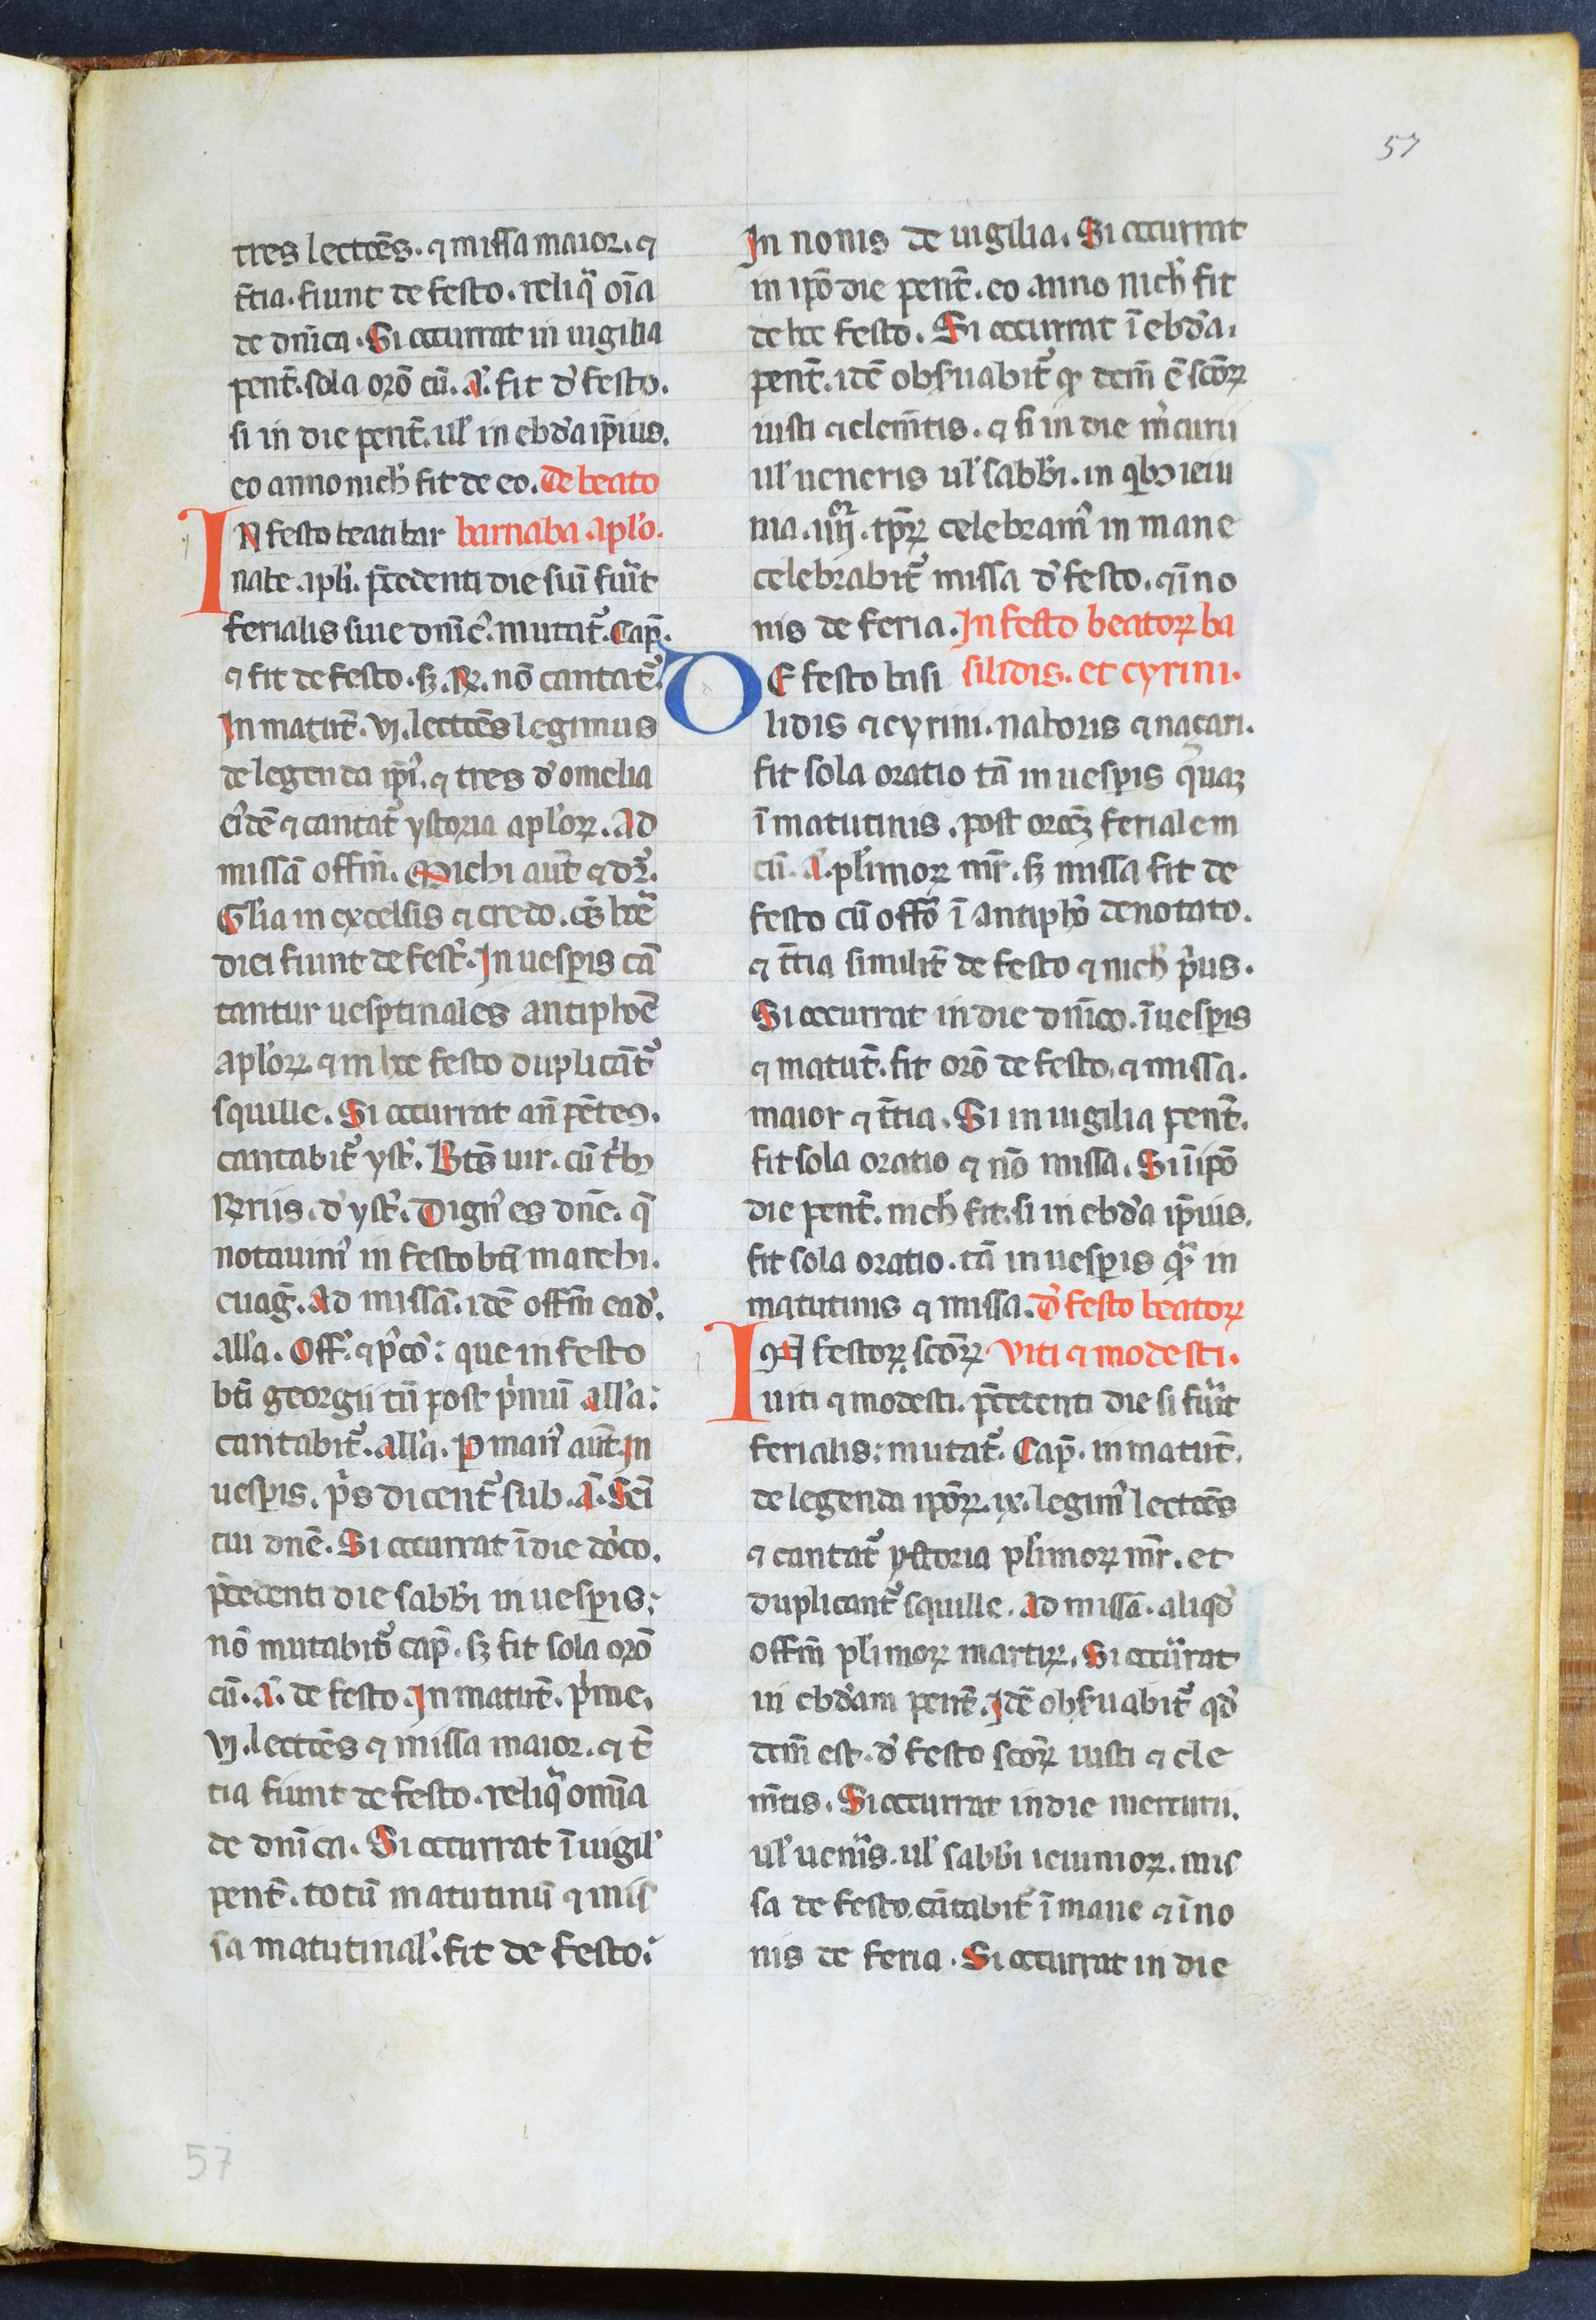 57
tres lectōes. ⁊ missa maior. ⁊
t̄tia. fiunt de festo. reliq̄ oīa
de dn̄ica. Si occurrat in uigilia
pent̄. sola orō cū. A͛. fit d͛ festo.
si in die pent̄. ul̓ in ebd̓a ip̄ius.
eo anno nich̓ fit de eo. De beato
IN festo beati bar barnaba aplo̓.
nabe apl̓i. p̄cedenti die siui fūit
ferialis siue dn̄ic̓. mutat᷑. Cap̄.
⁊ fit de festo. sꝫ. ℞. nō cantat᷑.
In matut̄. vj. lectōes legimus
de legenda ip̄i͛. ⁊ tres d͛ omelia
ei͛dē ⁊ cantat᷑ ystoria aplo̓ꝝ. Ad
missā offm̄. Michi aūt ⁊ dꝛ᷑.
Gl̓ia in excelsis ⁊ credo. cꝰ hōe
diei fiunt de fest͛. In uesp̱is cā
tantur uesp̱tinales antiphōe
aplo̓ꝝ. ⁊ in hoc festo duplicāt᷑
squille. Si occurrat an̄ pētes.
cantabit᷑ yst͛. Bt̄s uir. cū t͛bꝫ
℞riis. d͛ yst͛. Dign͛ es dn̄e. q̄
notauim᷒ in festo bt̄i marchi.
euag̓. Ad missā. idē offm̄ ead͛.
all̓a. Off͛. ⁊ p̓cō: que in festo
bt̄i georgii tn̄ post p̓mū all̓a:
cantabit᷑. all̓a. ꝑ man͛ aūt. In
uesp̱is. p̓s dicent᷑ sub. A͛. Sc̄i
tui dn̄e. Si occurrat ī die dōco.
p̄cedenti die sabb̓i in uesp̱is:
nō mutabit᷑ cap̄. sꝫ fit sola orō
cū. A͛. de festo. In matut̄. p̓me.
vj. lectōes ⁊ missa maior. ⁊ t̄
tia fiunt de festo. reliq̄ omīa
de dn̄ica. Si occurrat ī uigil̓
pent̄. totū matutinū ⁊ mis
sa matutinal̓. fit de festo.
In nonis de uigilia. Si occurrat
in ip̄o die pent̄. eo anno nich̓ fit
de hoc festo. Si occurrat ī ebd̓a.
pent̄. idē obs̓uabit᷑ qͥ dcm̄ ē scōꝝ
iusti ⁊ clem̄tis. ⁊ si in die m̓curii
ul̓ ueneris ul̓ sabb̓i. in qͥbꝫ ieiu
nia. iiijͦꝛ. tp̄ꝝ celebram᷒ in mane
celebrabit᷑ missa d͛ festo. ⁊ ī no
nis de feria. In festo beatoꝝ ba
DE festo basi silidis. et cyrini.
lidis ⁊ cyrini. naboris ⁊ naçari.
fit sola oratio tā in uesp̱is qͣꝫ
ī matutinis. post orōꝫ ferialem
cū. A͛. pl̓imoꝝ mr̄. sꝫ missa fit de
festo cū offō ī antiphō denotato.
⁊ t̄tia similit̄ de festo ⁊ nich̓ p̓us.
Si occurrat in die dn̄ico. ī uesp̱is
⁊ matut̄. fit orō de festo. ⁊ missa.
maior ⁊ t̄tia. Si in uigilia pent̄.
fit sola oratio ⁊ nō missa. Si ī ip̄o
die pent̄. nich̓ fit. si in ebd̓a ip̄ius.
fit sola oratio. tā in uesp̱is qͣ in
matutinis ⁊ missa. D͛ festo beatoꝝ
IN festoꝝ scōꝝ viti ⁊ modesti.
uiti ⁊ modesti. p̄cedenti die si fūit
ferialis: mutat᷑. Cap̄. in matut̄.
de legenda ip̄oꝝ. ix. legim᷒ lectōes
⁊ cantat᷑ ystoria pl̓imoꝝ mr̄. et
duplicant᷑ squille. Ad missā. aliqd̓
offm̄ pl̓imoꝝ martiꝝ. Si occurrat
in ebd̓am pent̄. Idē obs̓uabit᷑ qd̓
dcm̄ est. d͛ festo scōꝝ iusti ⁊ cle
m̄tis. Si occurrat in die mercurii.
ul̓ uen̄is. ul̓ sabb̓i ieiunioꝝ. mis
sa de festo cātabit᷑ ī mane ⁊ ī no
nis de feria. Si occurrat in die
57